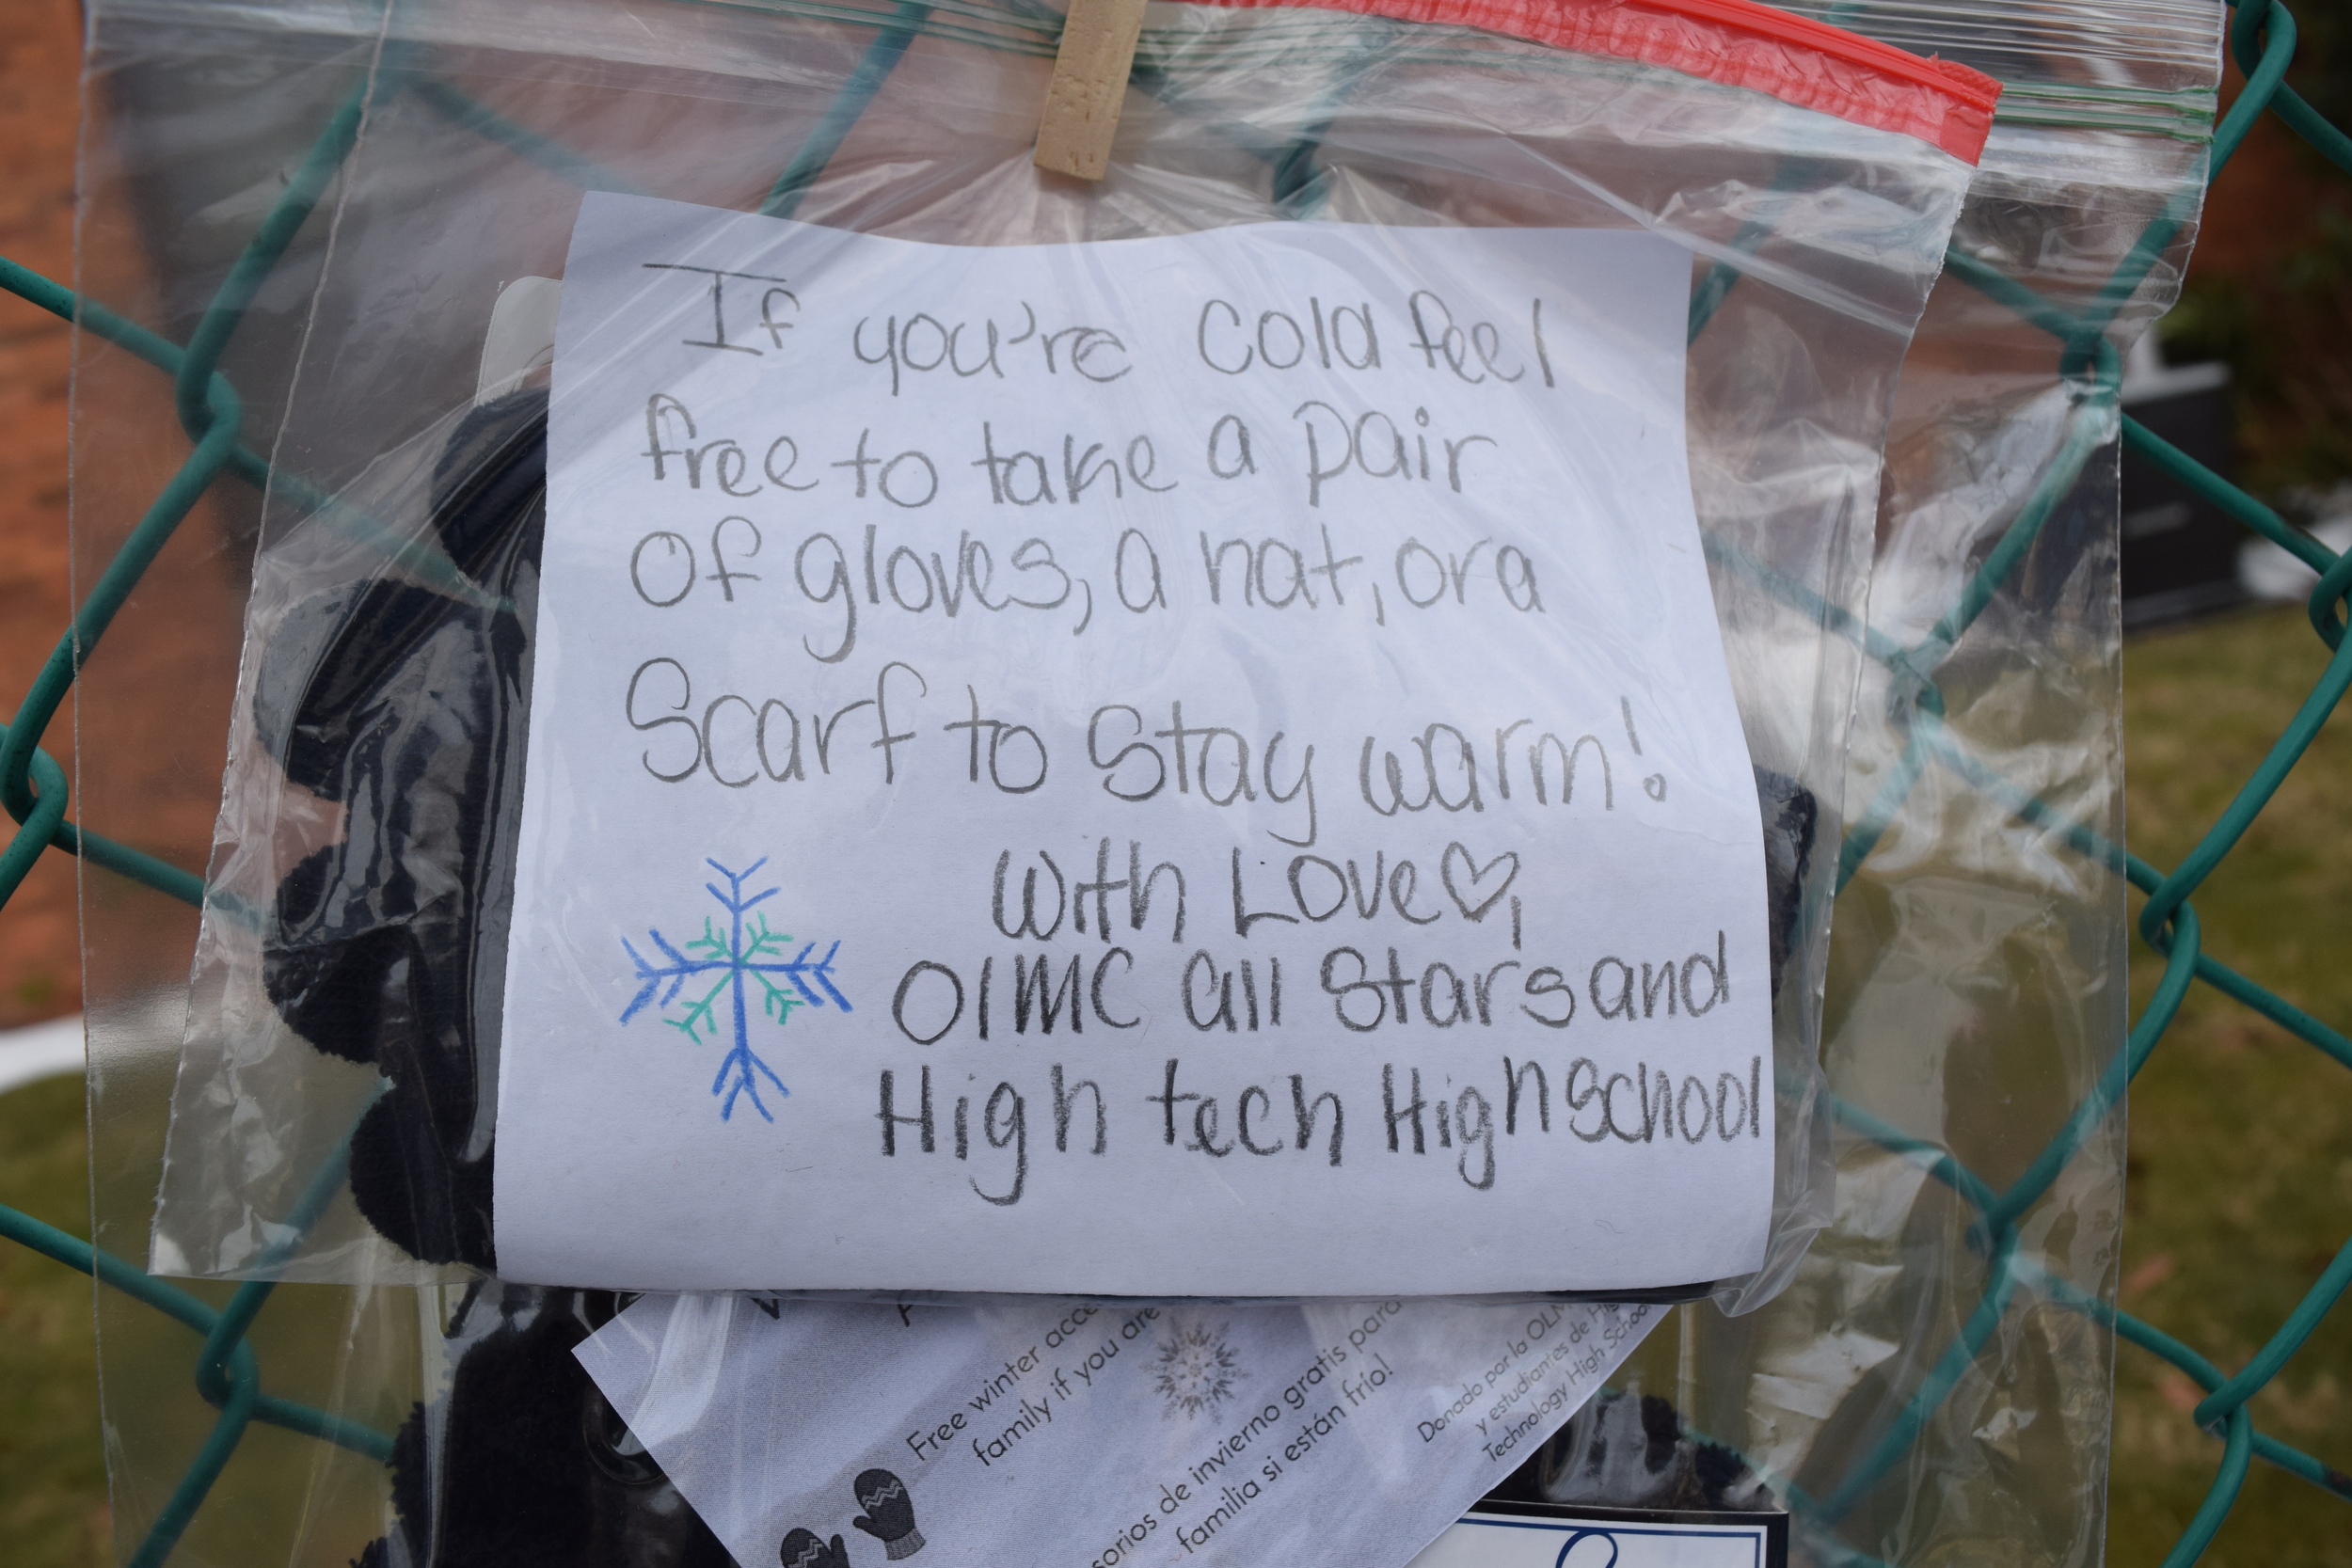 If you're cold feel
free to take a pair
of gloves, a hat, or a
Scarf to stay warm!
With Love♡,
OlMC all Stars and
High tech High School
Free winter acce
family if you are
sorios de invierno gratis para
familia si están frío!
Donado por la OLM
y estudiantes de Hig
Technology High Schoo